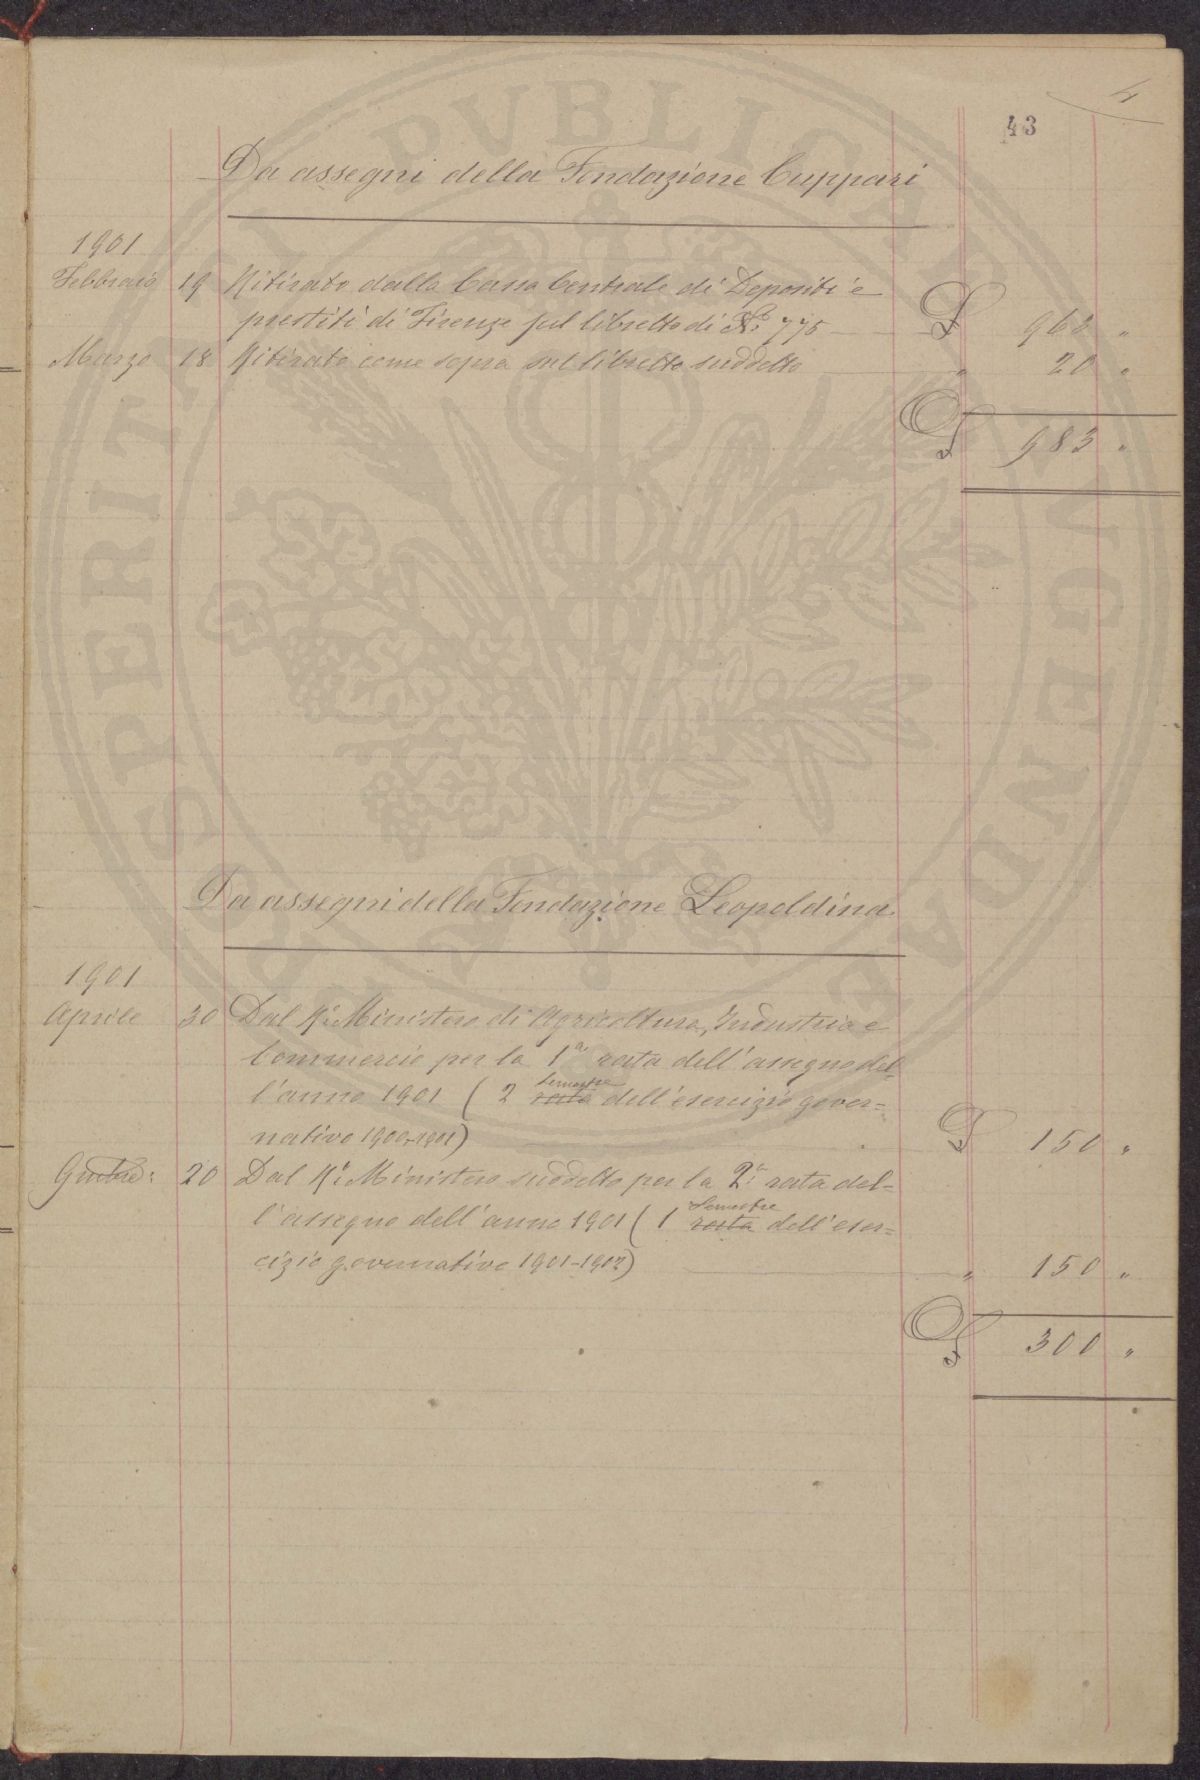 4
43
Da assegni della Fondazione Cuppari
1901
Febbraio 19 Ritirato dalla Cassa Centrale di Depositi e
prestiti di Firenze sul libretto di No. 775 £ 963 "
Marzo 18 Ritirato come sopra sul libretto suddetto " 20 "
£ 983 "
Da assegni della Fondazione Leopoldina
1901
Aprile 30 Dal R. Ministero di Agricoltura, Industria e
Commercio per la 1a rata dell'assegno del-
l'anno 1901 (2 rata Semestre dell'esercizio gover=
nativo 1900-1901) £ 150 "
20 Dal R. Ministero suddetto per la 2a rata del-
l'assegno dell'anno 1901 (1 rata Semestre dell'eser=
cizio governativo 1901-1902) " 150 "
£ 300 "
PROSPERITATI PVBLICAE AVGENDAE